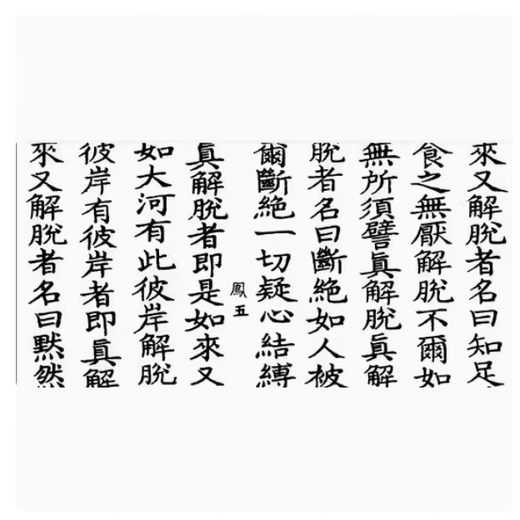 來又解脫者名曰知足
食之無厭解脫不爾如
無所須譬真解脫真解
脫者名曰斷絕如人被
爾斷絕一切疑心結縛
鳳五
真解脫者即是如來又
如大河有此彼岸解脫
彼岸有彼岸者即真解
來又解脫者名曰默然